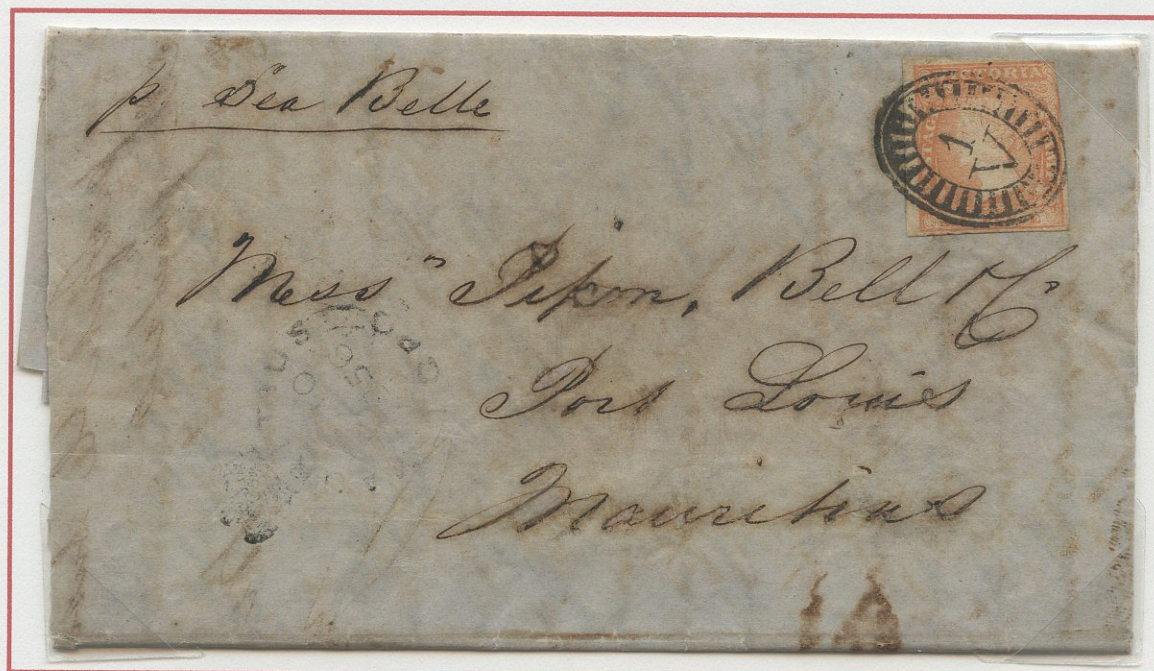 p Sea Belle
VICTORIA
1
V
Mess" Pipon, Bell & Co
Port Louis
Mauritius
GPO